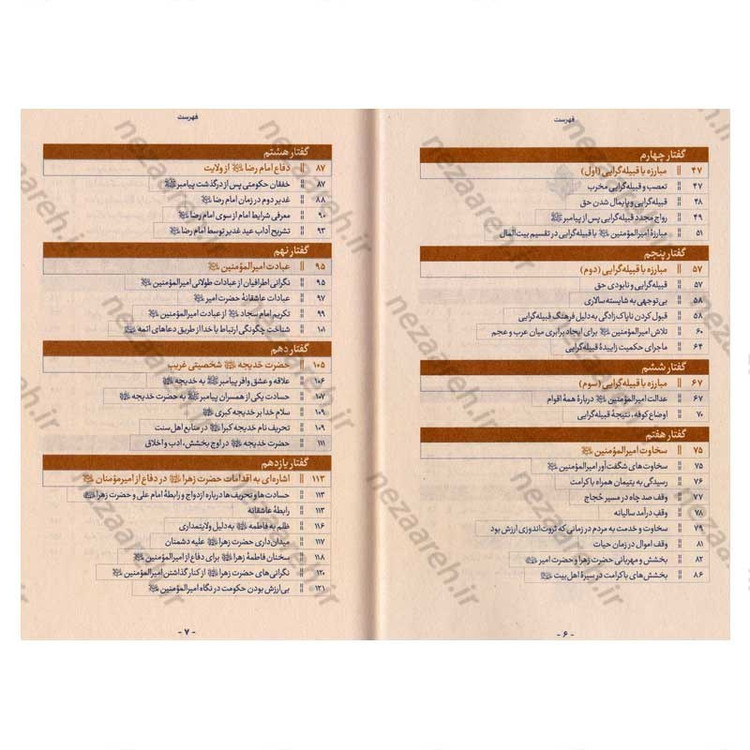 فهرست
گفتار چهارم
۴۷ مبارزه با قبیله‌گرایی (اول)
۴۷ تعصب و قبیله‌گرایی مخرب
۴۸ قبیله‌گرایی و پایمال شدن حق
۴۹ رواج مجدد قبیله‌گرایی پس از پیامبر ﷺ
۵۱ مبارزهٔ امیرالمؤمنین با قبیله‌گرایی در تقسیم بیت‌المال
گفتار پنجم
۵۷ مبارزه با قبیله‌گرایی (دوم)
۵۷ قبیله‌گرایی و نابودی حق
۵۸ بی‌توجهی به شایسته سالاری
۵۸ قبول کردن ناپاک‌زادگی به‌دلیل فرهنگ قبیله‌گرایی
۶۰ تلاش امیرالمؤمنین برای ایجاد برابری میان عرب و عجم
۶۴ ماجرای حکمیت زاییدهٔ قبیله‌گرایی
گفتار ششم
۶۷ مبارزه با قبیله‌گرایی (سوم)
۶۷ عدالت امیرالمؤمنین دربارهٔ همهٔ اقوام
۷۰ اوضاع کوفه، نتیجهٔ قبیله‌گرایی
گفتار هفتم
۷۵ سخاوت امیرالمؤمنین
۷۵ سخاوت‌های شگفت‌آور امیرالمؤمنین
۷۶ رسیدگی به یتیمان همراه با کرامت
۷۷ وقف صد چاه در مسیر حُجاج
۷۸ وقف درآمد سالیانه
۷۹ سخاوت و خدمت به مردم در زمانی که ثروت‌اندوزی ارزش بود
۸۱ وقف اموال در زمان حیات
۸۲ بخشش و مهربانی حضرت زهرا و حضرت امیر
۸۶ بخشش‌های باکرامت در سیرهٔ اهل‌بیت
- ۶ -
فهرست
گفتار هشتم
۸۷ دفاع امام رضا از ولایت
۸۷ خفقان حکومتی پس از درگذشت پیامبر ﷺ
۸۸ غدیر دوم در زمان امام رضا
۹۰ معرفی شرایط امام از سوی امام رضا
۹۳ تشریح آداب عید غدیر توسط امام رضا
گفتار نهم
۹۵ عبادت امیرالمؤمنین
۹۵ نگرانی اطرافیان از عبادات طولانی امیرالمؤمنین
۹۷ عبادات عاشقانهٔ حضرت امیر
۹۹ تکریم امام سجاد از عبادت امیرالمؤمنین
۱۰۱ شناخت چگونگی ارتباط با خدا از طریق دعاهای ائمه
گفتار دهم
۱۰۵ حضرت خدیجه شخصیتی غریب
۱۰۶ علاقه و عشق وافر پیامبر به خدیجه
۱۰۷ حسادت یکی از همسران پیامبر به حضرت خدیجه
۱۰۹ سلام خدا بر خدیجه کبری
۱۰۹ تحریف نام خدیجه کبرا در منابع اهل‌سنت
۱۱۱ حضرت خدیجه در اوج بخشش، ادب و اخلاق
گفتار یازدهم
۱۱۳ اشاره‌ای به اقدامات حضرت زهرا در دفاع از امیرمؤمنان
۱۱۳ حسادت‌ها و تحریف‌ها درباره ازدواج و رابطهٔ امام علی و حضرت زهرا
۱۱۳ رابطهٔ عاشقانه
۱۱۶ ظلم به فاطمه به‌دلیل ولایتمداری
۱۱۷ میدان‌داری حضرت زهرا علیه دشمنان
۱۱۸ سخنان فاطمهٔ زهرا برای دفاع از امیرالمؤمنین
۱۲۰ نگرانی‌های حضرت زهرا از کنار گذاشتن امیرالمؤمنین
۱۲۱ بی‌ارزش بودن حکومت در نگاه امیرالمؤمنین
- ۷ -
nezaareh.ir